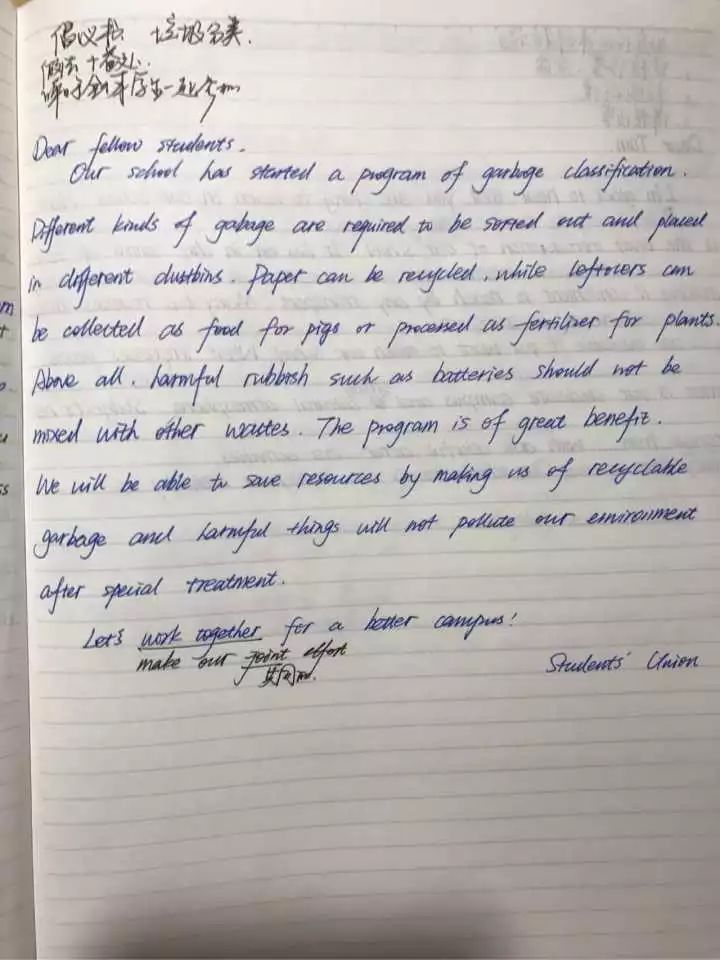 倡议书 垃圾分类.
做法 + 益处.
呼吁全校学生一起参加
Dear fellow students.
Our school has started a program of garbage classification.
Different kinds of gabage are required to be sorted out and placed
in different dustbins. Paper can be recycled, while leftovers can
be collected as food for pigs or processed as fertilizer for plants.
Above all, harmful rubbish such as batteries should not be
mixed with other wastes. The program is of great benefit.
We will be able to save resources by making us of recyclable
garbage and harmful things will not pollute our environment
after special treatment.
Let's work together for a better campus!
make our joint effort
共同的.
Students' Union